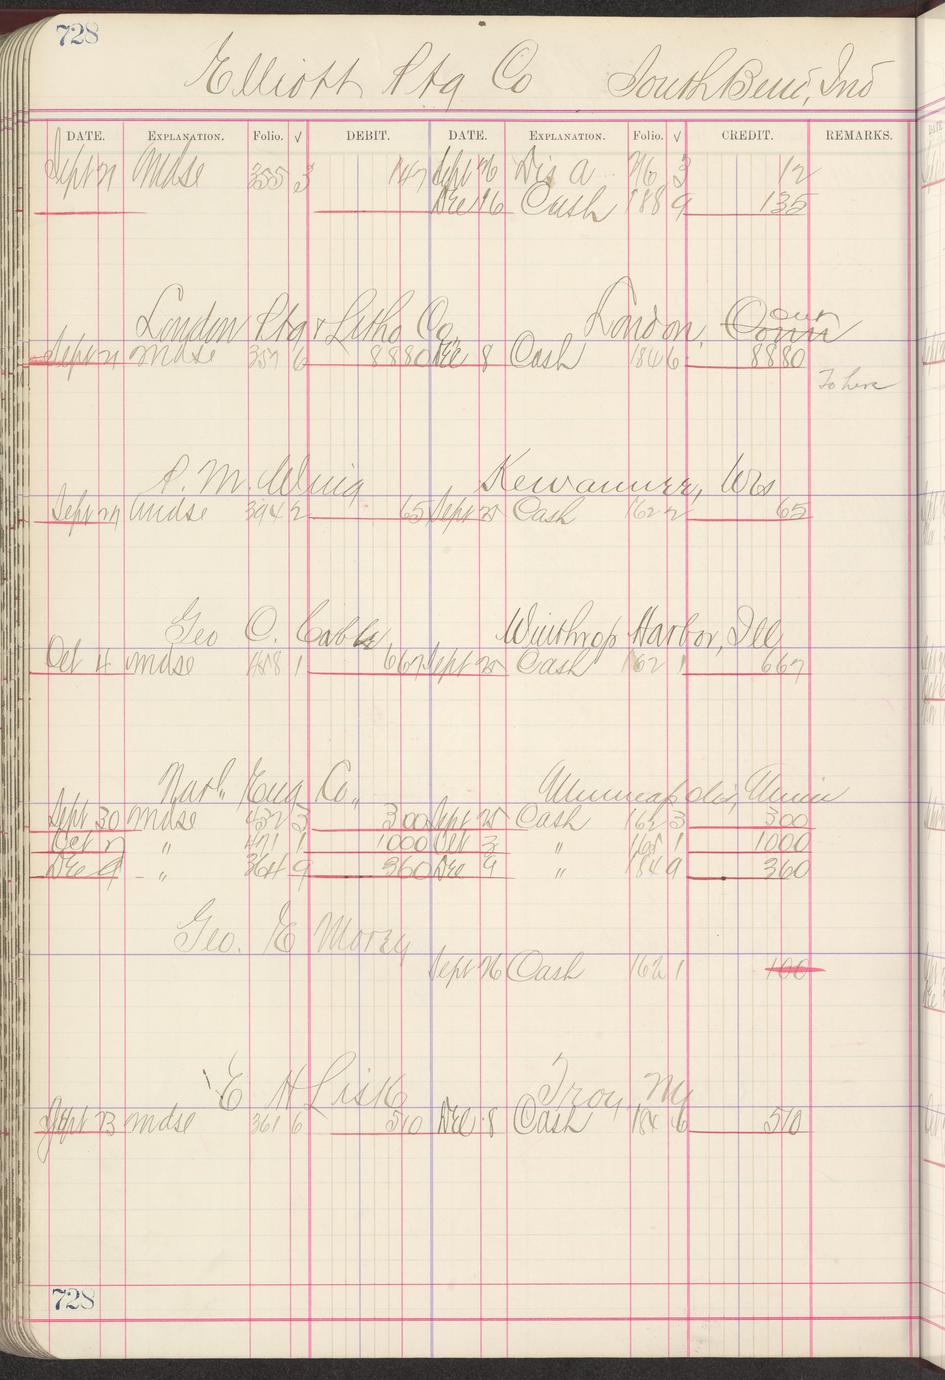 728
Elliott Ptg Co South Bend, Ind
DATE. EXPLANATION. Folio. √ DEBIT. DATE. EXPLANATION. Folio. √ CREDIT. REMARKS.
Sept 21 Mdse 355 3 147 Sept 26 Dis a 76 3 12
Dec 16 Cash 188 9 135
London Ptg & Litho Co., London, Conn Ont
Sept 21 Mdse 357 6 8880 Dec 8 Cash 184 6 8880
To here
P. M. Wing Kewaunee, Wis
Sept 24 Mdse 394 2 65 Sept 25 Cash 162 2 65
Geo O. Cabble Winthrop Harbor, Ill
Oct 4 Mdse 458 1 667 Sept 25 Cash 162 1 667
Natl. Eng Co., Minneapolis, Minn
Sept 30 Mdse 432 3 300 Sept 25 Cash 162 3 300
Oct 7 " 471 1 1000 Oct 3 " 165 1 1000
Dec 9 " 364 9 360 Dec 9 " 184 9 360
Geo. E Morey
Sept 26 Cash 162 1 100
E H Lisk Troy NY
Sept 23 Mdse 361 6 510 Dec 8 Cash 184 6 510
728